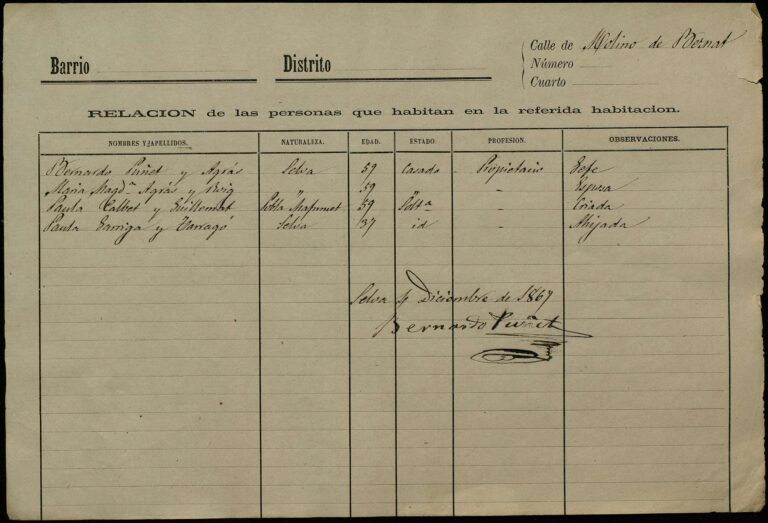 Barrio
Distrito
Calle de Molino de Bernat
Número
Cuarto
RELACION de las personas que habitan en la referida habitacion.
NOMBRES Y APELLIDOS. NATURALEZA. EDAD. ESTADO. PROFESION. OBSERVACIONES.
Bernardo Puñet y Agrás Selva 59 Casado Propietario Gefe
Maria Magdna Agrás y Puig " 59 " Esposa
Paula Calbet y Guillemat Pobla Mafumet 59 Solta - Criada
Paula Garriga y Tarragó Selva 37 id - Ahijada
Selva Diciembre de 1867
Bernardo Puñet